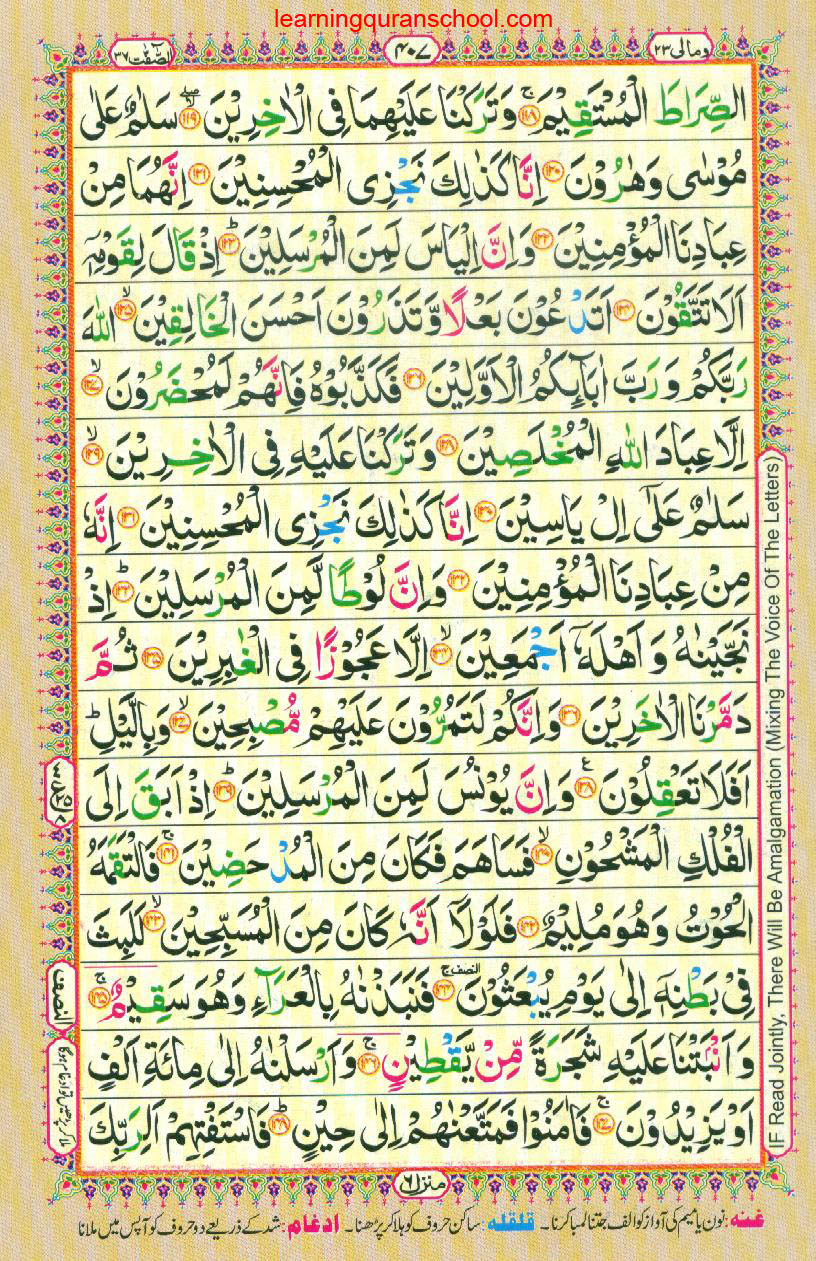 learningquranschool.com
الصّٰٓفّٰت ٣٧
٤٠٧
ومالی ٢٣
الصِّرَاطَ الْمُسْتَقِيْمَ ۚ‏﴿١١٨﴾ وَتَرَكْنَا عَلَيْهِمَا فِى الْاٰخِرِيْنَ ۙ‏﴿١١٩﴾ سَلٰمٌ عَلٰى
مُوْسٰى وَهٰرُوْنَ ﴿١٢٠﴾ اِنَّا كَذٰلِكَ نَجْزِى الْمُحْسِنِيْنَ ﴿١٢١﴾ اِنَّهُمَا مِنْ
عِبَادِنَا الْمُؤْمِنِيْنَ ﴿١٢٢﴾ وَاِنَّ اِلْيَاسَ لَمِنَ الْمُرْسَلِيْنَ ؕ‏﴿١٢٣﴾ اِذْ قَالَ لِقَوْمِهٖۤ
اَلَا تَتَّقُوْنَ ﴿١٢٤﴾ اَتَدْعُوْنَ بَعْلًا وَّتَذَرُوْنَ اَحْسَنَ الْخَالِقِيْنَ ۙ‏﴿١٢٥﴾ اللّٰهَ
رَبَّكُمْ وَرَبَّ اٰبَآئِكُمُ الْاَوَّلِيْنَ ﴿١٢٦﴾ فَكَذَّبُوْهُ فَاِنَّهُمْ لَمُحْضَرُوْنَ ۙ‏﴿١٢٧﴾
اِلَّا عِبَادَ اللّٰهِ الْمُخْلَصِيْنَ ﴿١٢٨﴾ وَتَرَكْنَا عَلَيْهِ فِى الْاٰخِرِيْنَ ۙ‏﴿١٢٩﴾
سَلٰمٌ عَلٰٓى اِلْ يَاسِيْنَ ﴿١٣٠﴾ اِنَّا كَذٰلِكَ نَجْزِى الْمُحْسِنِيْنَ ﴿١٣١﴾ اِنَّهٗ
مِنْ عِبَادِنَا الْمُؤْمِنِيْنَ ﴿١٣٢﴾ وَاِنَّ لُوْطًا لَّمِنَ الْمُرْسَلِيْنَ ؕ‏﴿١٣٣﴾ اِذْ
نَجَّيْنٰهُ وَاَهْلَهٗۤ اَجْمَعِيْنَ ۙ‏﴿١٣٤﴾ اِلَّا عَجُوْزًا فِى الْغٰبِرِيْنَ ﴿١٣٥﴾ ثُمَّ
دَمَّرْنَا الْاٰخَرِيْنَ ﴿١٣٦﴾ وَاِنَّكُمْ لَتَمُرُّوْنَ عَلَيْهِمْ مُّصْبِحِيْنَ ۙ‏﴿١٣٧﴾ وَبِالَّيْلِ ؕ
اَفَلَا تَعْقِلُوْنَ ﴿١٣٨﴾ ع وَاِنَّ يُوْنُسَ لَمِنَ الْمُرْسَلِيْنَ ؕ‏﴿١٣٩﴾ اِذْ اَبَقَ اِلَى
الْفُلْكِ الْمَشْحُوْنِ ۙ‏﴿١٤٠﴾ فَسَاهَمَ فَكَانَ مِنَ الْمُدْحَضِيْنَ ۚ‏﴿١٤١﴾ فَالْتَقَمَهُ
الْحُوْتُ وَهُوَ مُلِيْمٌ ﴿١٤٢﴾ فَلَوْلَاۤ اَنَّهٗ كَانَ مِنَ الْمُسَبِّحِيْنَ ۙ‏﴿١٤٣﴾ لَلَبِثَ
فِىْ بَطْنِهٖۤ اِلٰى يَوْمِ يُبْعَثُوْنَ ۚ‏﴿١٤٤﴾ النصف فَنَبَذْنٰهُ بِالْعَرَآءِ وَهُوَ سَقِيْمٌ ۚ‏﴿١٤٥﴾
وَاَنْۢبَتْنَا عَلَيْهِ شَجَرَةً مِّنْ يَّقْطِيْنٍ ۚ‏﴿١٤٦﴾ وَاَرْسَلْنٰهُ اِلٰى مِائَةِ اَلْفٍ
اَوْ يَزِيْدُوْنَ ۚ‏﴿١٤٧﴾ فَاٰمَنُوْا فَمَتَّعْنٰهُمْ اِلٰى حِيْنٍ ؕ‏﴿١٤٨﴾ فَاسْتَفْتِهِمْ اَلِرَبِّكَ
النصف
ملا کر پڑھیں تو ادغام ہوگا
IF Read Jointly, There Will Be Amalgamation (Mixing The Voice Of The Letters)
منزل ٦
غنه: نون یا میم کی آواز کو الف جتنا لمبا کرنا۔ قلقله: ساکن حروف کو ہلا کر پڑھنا۔ ادغام: شد کے ذریعے دو حروف کو آپس میں ملانا